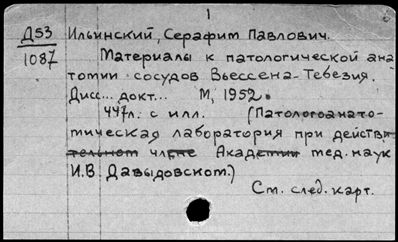 1
Д53 Ильинский, Серафим Павлович.
1087 Материалы к патологической ана
томии сосудов Вьессена-Тебезия.
Дисс... докт... М, 1952.
447л. с илл. (Патологоанато-
мическая лаборатория при действи
тельном члене Академии мед. наук
И.В. Давыдовском.)
См. след. карт.